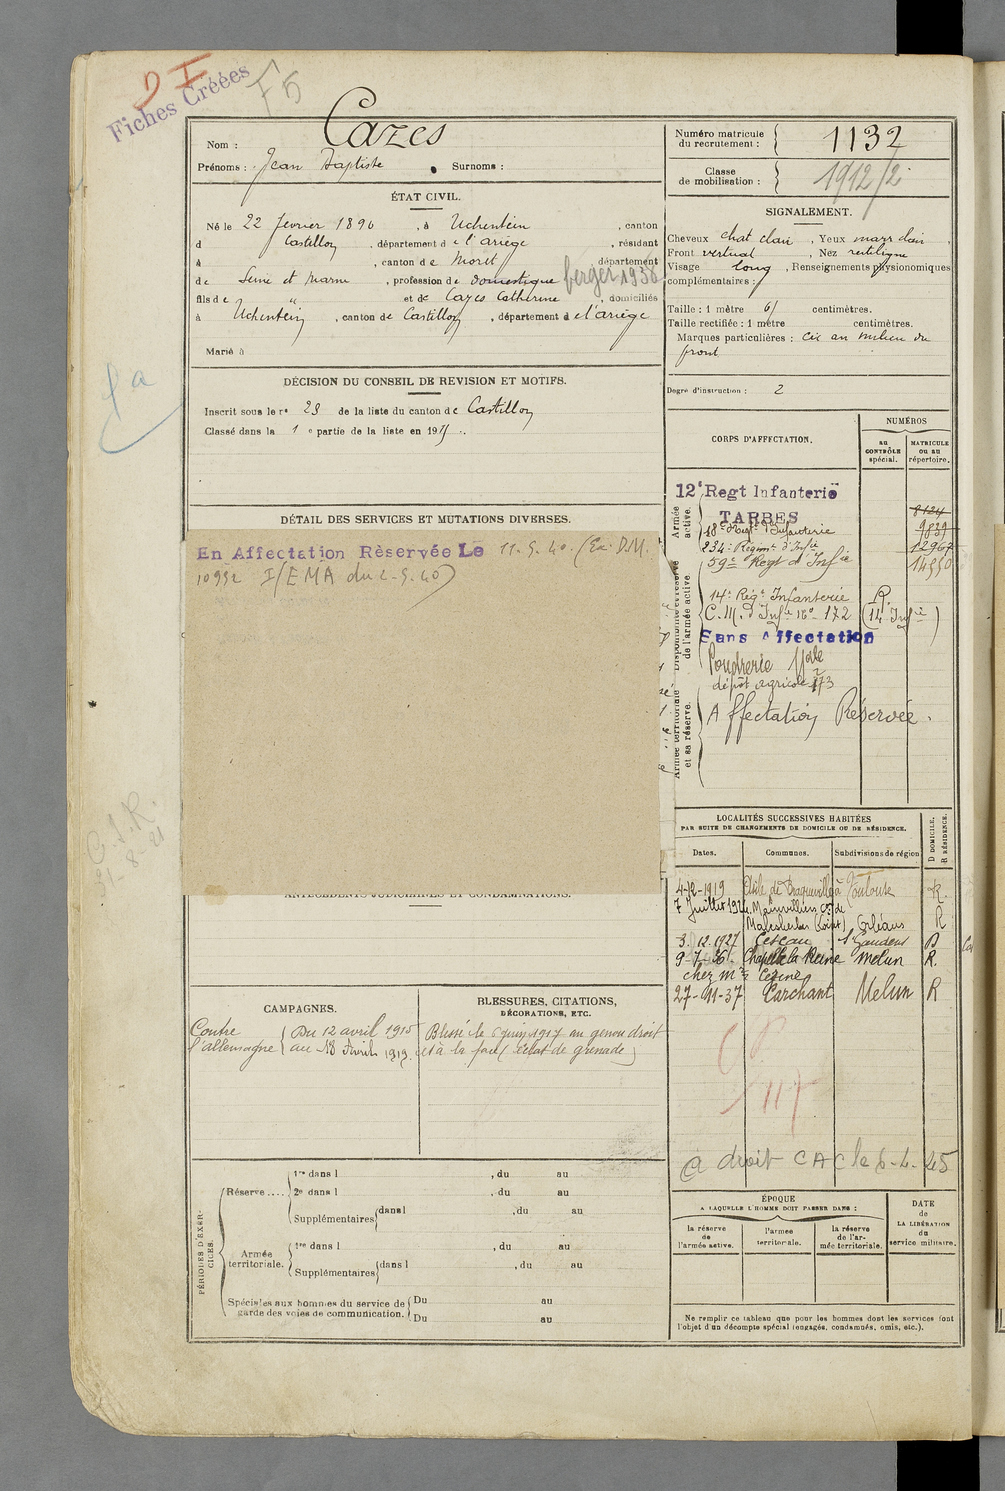 D I
Fiches Créées
F5
Nom : Cazes
Prénoms : Jean Baptiste . Surnoms :
Numéro matricule du recrutement : 1132
Classe de mobilisation : 1912/2
ÉTAT CIVIL.
Né le 22 février 1896, à Uchentein, canton
d Castillon, département de l'Ariège, résidant
à , canton de Moret, département
de Seine et Marne, profession de domestique berger 1936
fils de " et de Cazes Catherine, domiciliés
à Uchentein, canton de Castillon, département de l'ariège
Marié à
SIGNALEMENT.
Cheveux chat clair, Yeux marr clair,
Front vertical, Nez rectiligne
Visage long, Renseignements physionomiques
complémentaires :
Taille : 1 mètre 61 centimètres.
Taille rectifiée : 1 mètre centimètres.
Marques particulières : cic au milieu du
front
Degré d'instruction : 2
fa
DÉCISION DU CONSEIL DE REVISION ET MOTIFS.
Inscrit sous le no 29 de la liste du canton de Castillon
Classé dans la 1e partie de la liste en 1915.
DÉTAIL DES SERVICES ET MUTATIONS DIVERSES.
En Affectation Rèservée Le 11.5.40. (Ex. D.M.
10992 I/EMA du 2-5.40)
CORPS D'AFFECTATION.
NUMÉROS
au CONTRÔLE spécial.
MATRICULE ou au répertoire.
Armée active.
Disponibilité et réserve de l'armée active.
Armée territoriale et sa réserve.
12e Regt Infanterie
TARBES 8124
18e Regt d'Infanterie 9839
234e Régimt d'Infie 12967
59e Regt d'Infie 14550
14e Régt Infanterie
C.M. d'Infie no 172 (14 Infie)
Sans Affectation
Poudrerie Nale
dépôt agricole 173
Affectation Réservée.
LOCALITÉS SUCCESSIVES HABITÉES
PAR SUITE DE CHANGEMENTS DE DOMICILE OU DE RÉSIDENCE.
D DOMICILE. R RÉSIDENCE.
Dates. Communes. Subdivisions de région
4-12-1919 Asile de Braqueville à Toulouse R.
7 Juillet 1924 Mainvilliers con de
Malesherbes (Loiret) Orléans R
3.12.1927 Cescau St Gaudens D
9-7-36. Chapelle la Reine Melun R.
chez Mr
27-11-37 Larchant Melun R
C.S.R.
ANTÉCÉDENTS JUDICIAIRES ET CONDAMNATIONS.
CAMPAGNES.
Contre l'allemagne { Du 12 avril 1915
au 18 Avril 1919.
BLESSURES, CITATIONS,
DÉCORATIONS, ETC.
Blessé le 6 juin 1917 au genou droit
et à la face (éclat de grenade)
117
a droit CAC le 6-4-45
PÉRIODES D'EXERCICES.
Réserve .... 1re dans l , du au
2e dans l , du au
Supplémentaires dans l , du au
Armée territoriale. 1re dans l , du au
Supplémentaires dans l , du au
Spéciales aux hommes du service de garde des voies de communication. Du au
Du au
ÉPOQUE
A LAQUELLE L'HOMME DOIT PASSER DANS :
la réserve de l'armée active.
l'armée territoriale.
la réserve de l'armée territoriale.
DATE de LA LIBÉRATION du service militaire.
Ne remplir ce tableau que pour les hommes dont les services font
l'objet d'un décompte spécial (engagés, condamnés, omis, etc.).